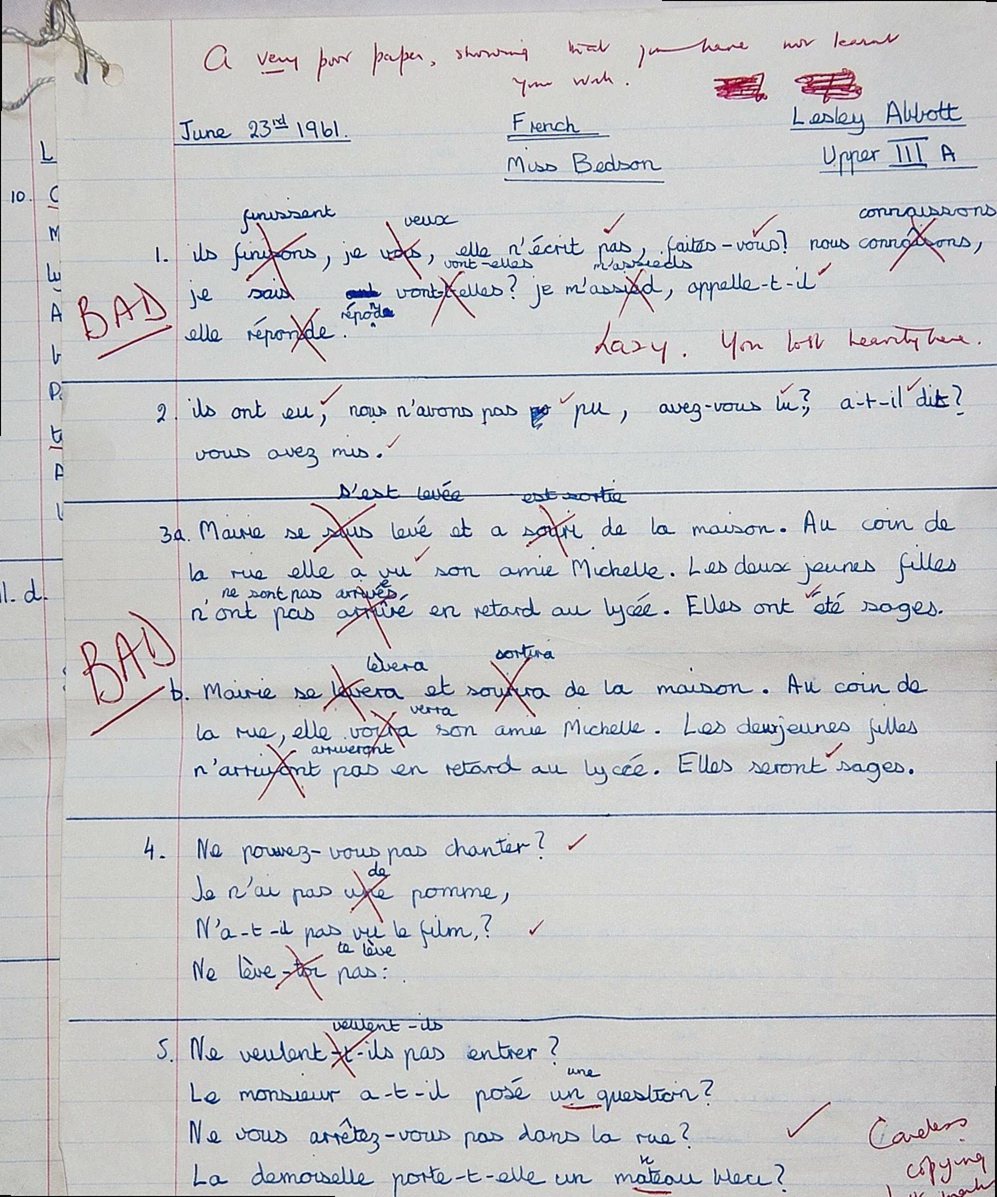 A very poor paper, showing that you have not learnt
your work.
June 23rd 1961.
French
Lesley Abbott
Miss Bedson
Upper III A
L
10.
C
M
A
P.
A
11. d.
finissent veux connaissons
1. ils finisons, je vous, elle n'écrit pas, faites-vous? nous connaîsons,
vont-elles m'assieds
je sais vont-t-elles? je m'assied, appelle-t-il
BAD
réponde
elle réponde.
Lazy. You lost heavily here.
2. ils ont eu, nous n'avons pas pu, avez-vous lu?, a-t-il dit?
vous avez mis.
s'est levée est sortie
3a. Mairie se suis levé et a souri de la maison. Au coin de
la rue elle a vu son amie Michelle. Les deux jeunes filles
ne sont pas arrivés
n'ont pas arrivé en retard au lycée. Elles ont été sages.
BAD
lèvera sortira
b. Mairie se levera et sourira de la maison. Au coin de
verra
la rue, elle voira son amie Michelle. Les deux jeunes filles
arriveront
n'arrivont pas en retard au lycée. Elles seront sages.
4. Ne pouvez-vous pas chanter?
de
Je n'ai pas une pomme,
N'a-t-il pas vu le film,?
te lève
Ne lève-toi pas:
veulent-ils
5. Ne veulent-t-ils pas entrer?
une
Le monsieur a-t-il posé un question?
Ne vous arrêtez-vous pas dans la rue?
Careless
copying
La demoiselle porte-t-elle un mateau bleu?